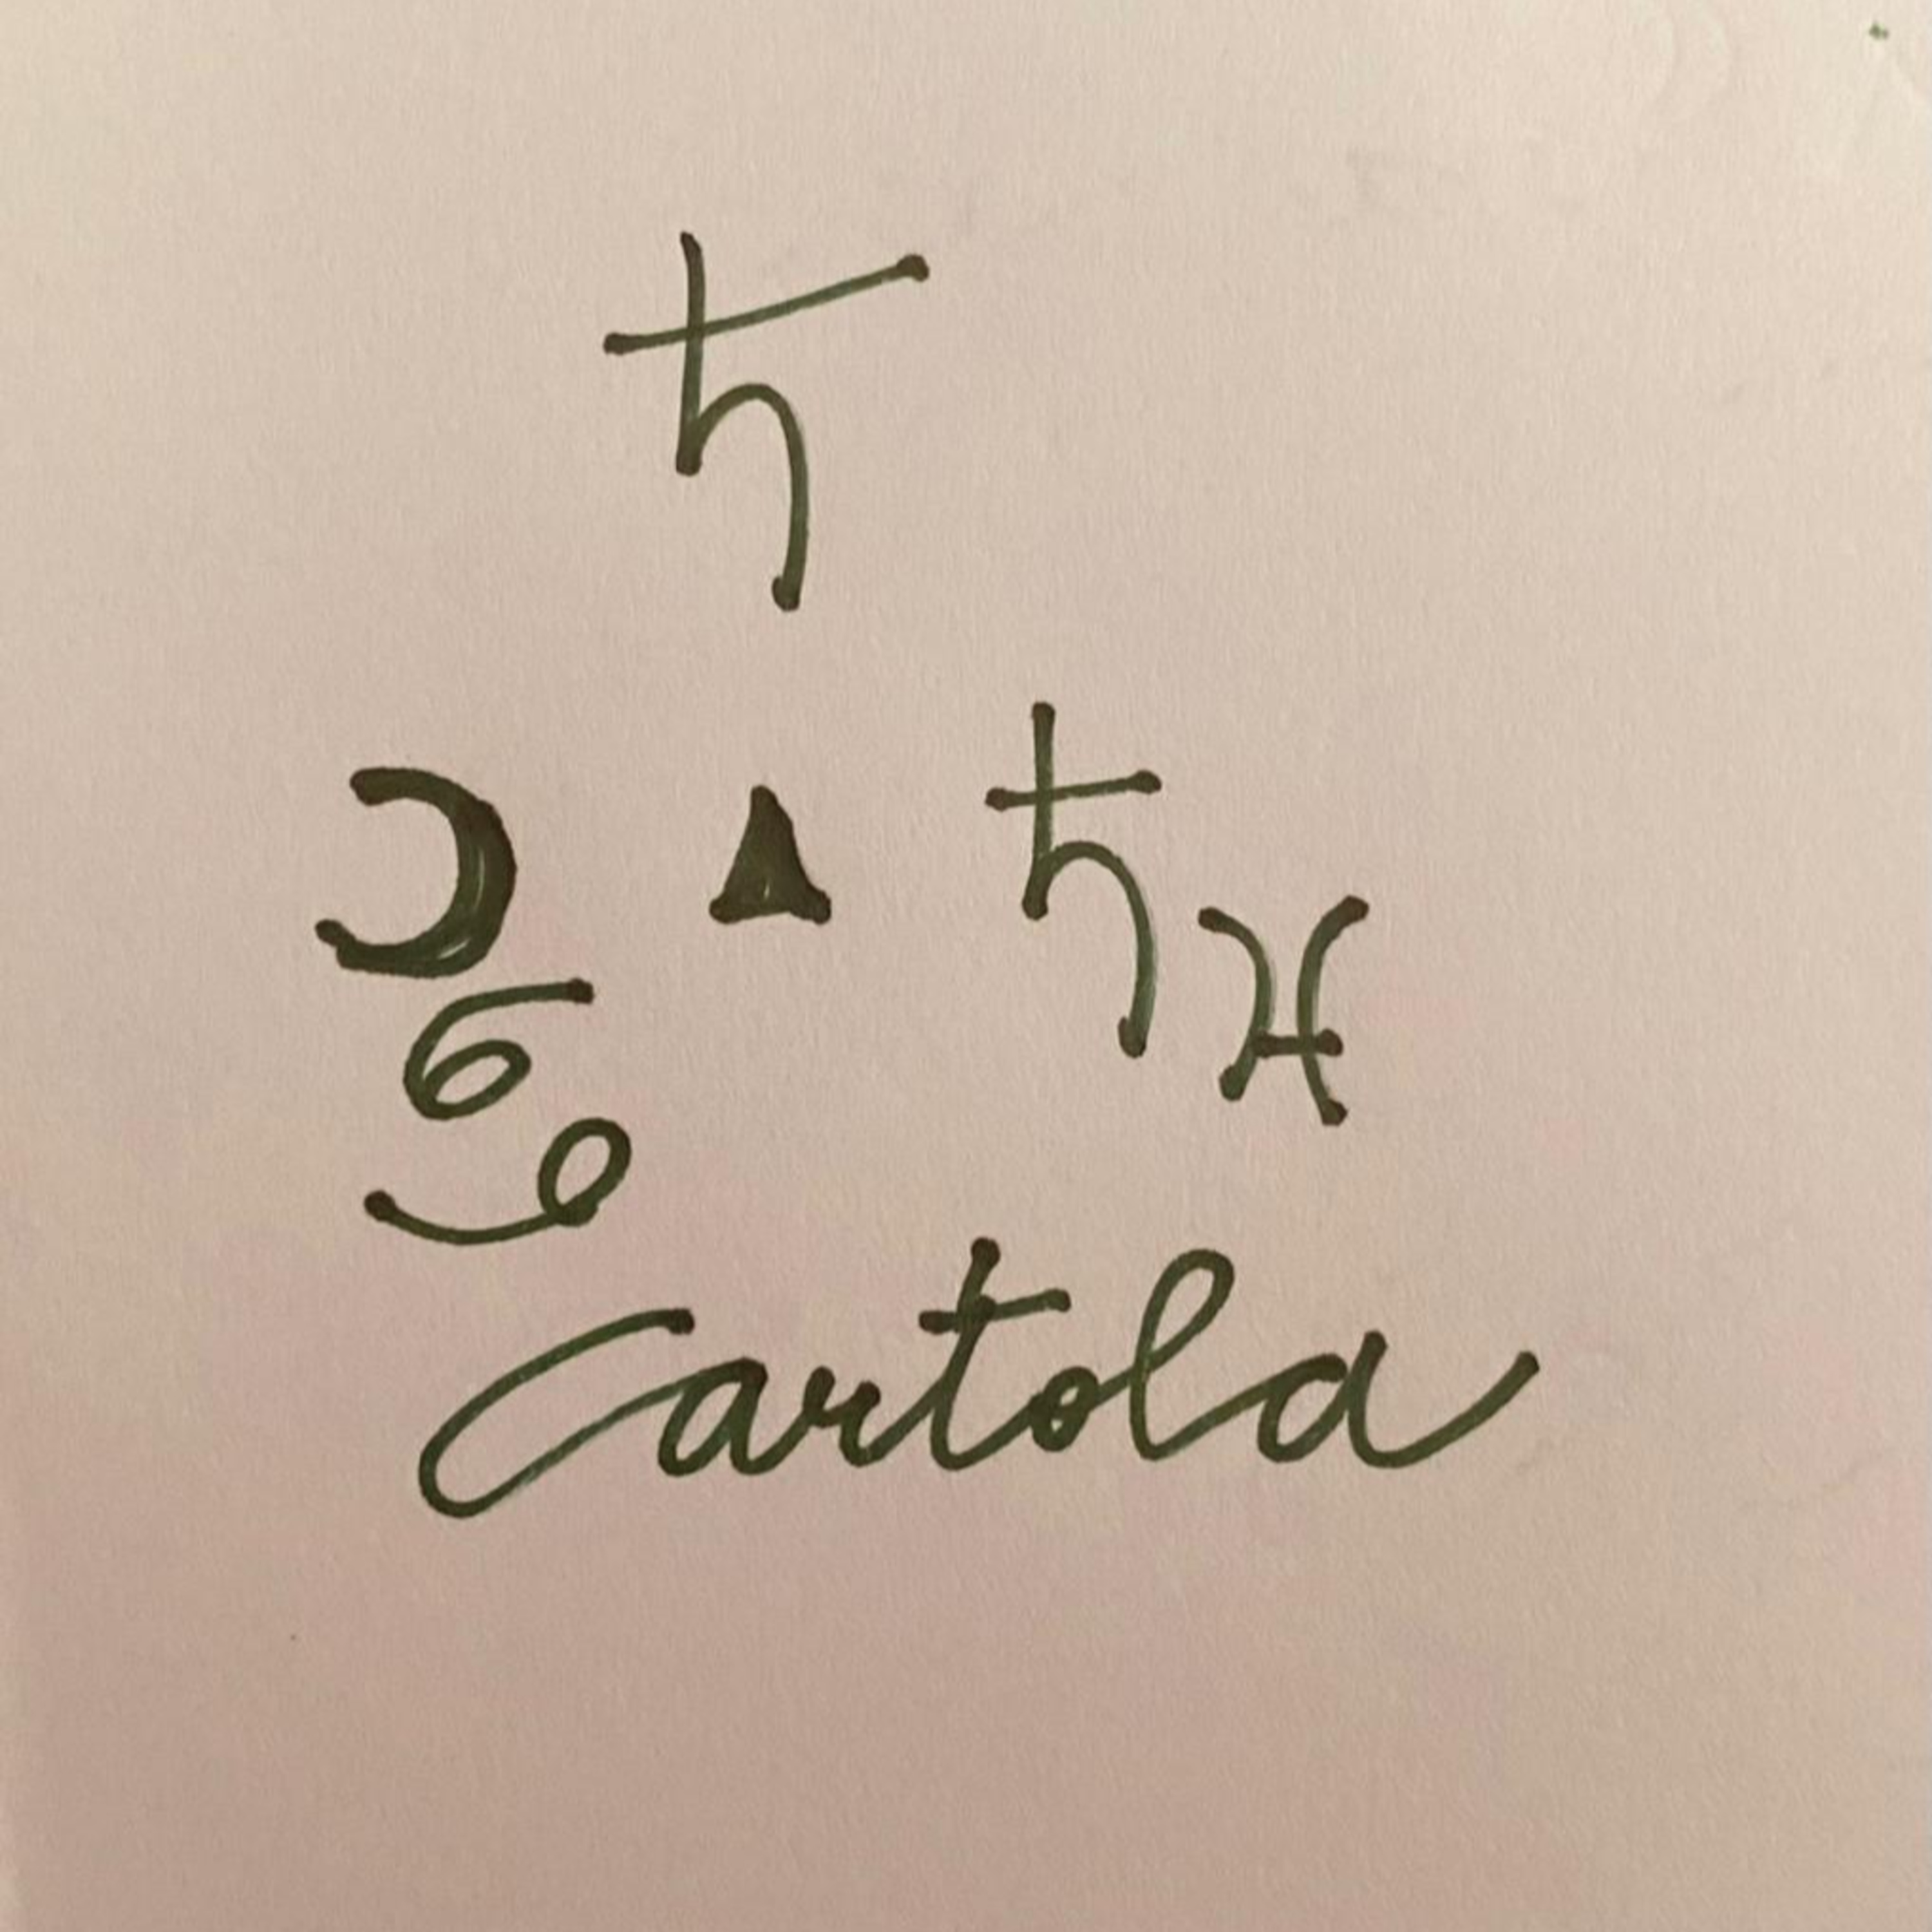 ♄
☽ ▲ ♄ ♓
♋
Cartola